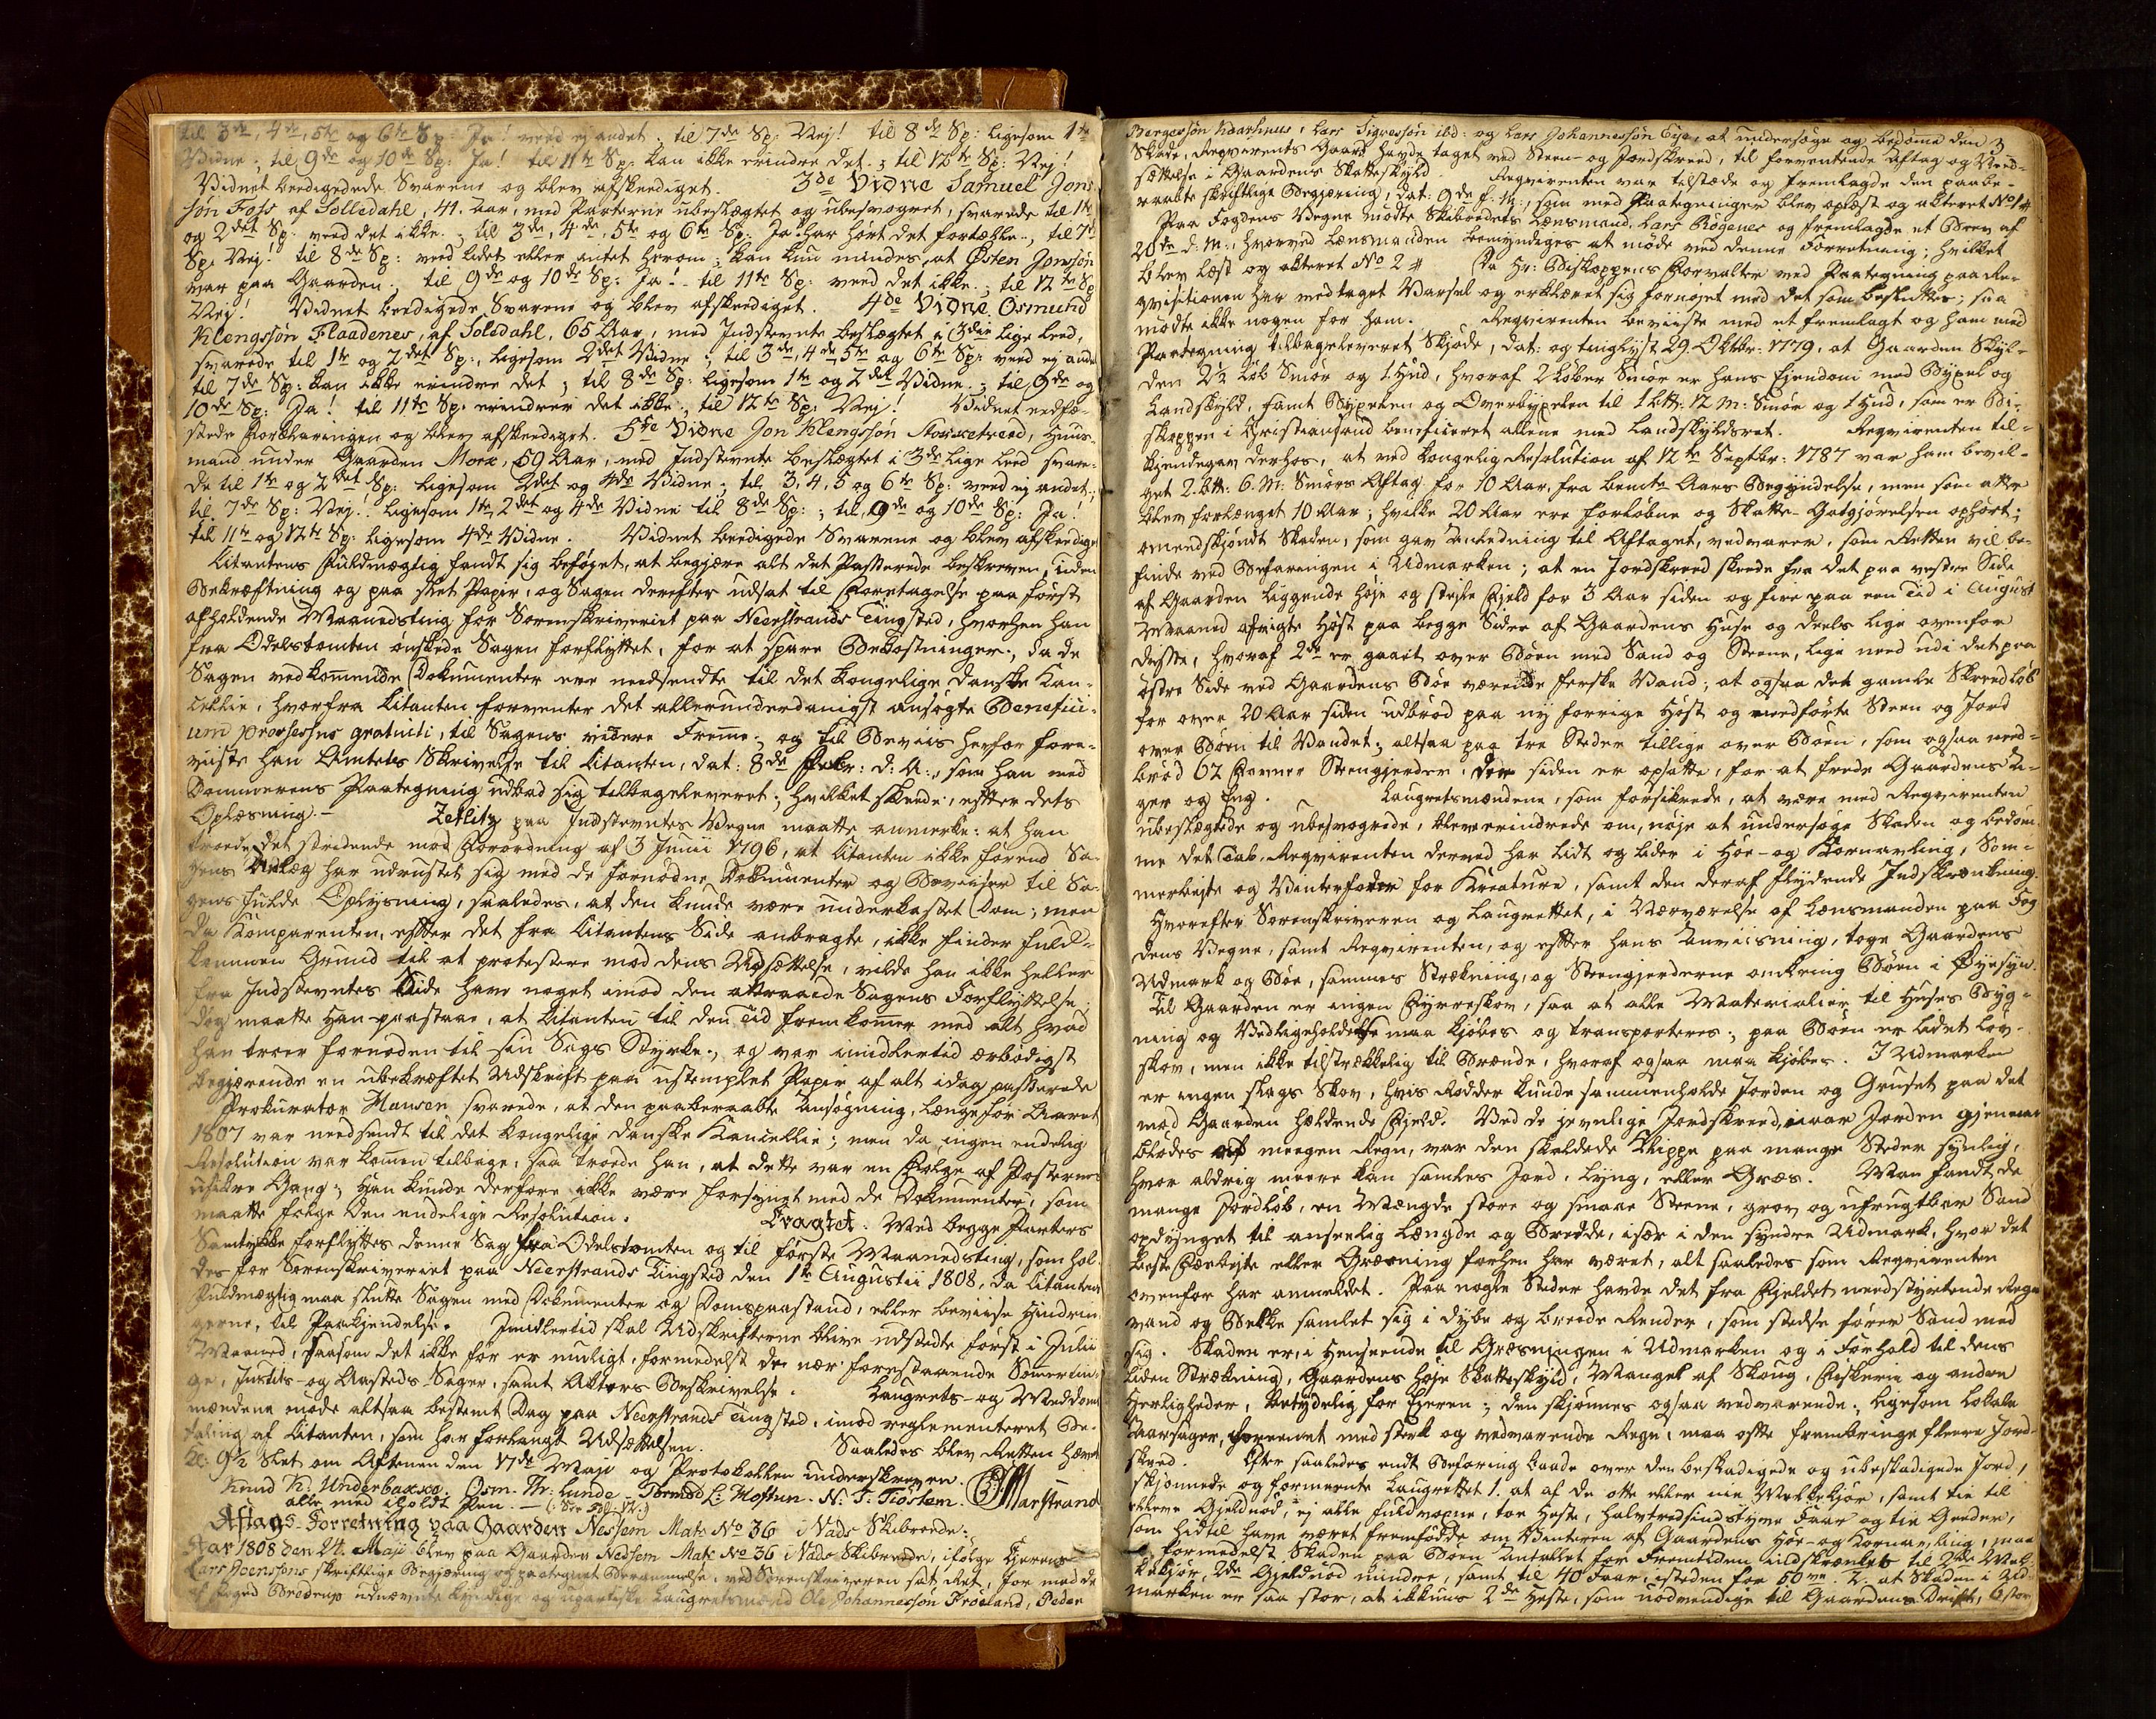 til 3de, 4de, 5te og 6te Sp: Ja! veed ej andet; til 7de Sp: Nej! til 8de Sp: ligesom 1te
Vidne; til 9de og 10de Sp: Ja! til 11te Sp: kan ikke erindre det; til 12te Sp: Nej!
Vidnet beedigede Svarene og blev afskeediget. 3de Vidne Samuel Jons
søn Foss af Solledahl, 41. Aar, med Parterne ubeslægtet og ubesvogret, svarede til 1te
og 2det Sp: veed det ikke; til 3de, 4de, 5te og 6te Sp: Ja! har hørt det fortælle; til 7de
Sp: Nej! til 8de Sp: veed lidet eller intet herom; kan kun mindes, at Østen Jonssøn
var paa Gaarden; til 9de og 10de Sp: Ja! til 11te Sp: veed det ikke; til 12te Sp
Nej! Vidnet beedigede Svarene og blev afskeediget. 4de Vidne Osmund
Klengssøn Flaadenes, af Solsdahl, 65 Aar, med Indstevnte beslægtet i 3die lige Leed,
svarede til 1te og 2det Sp:, ligesom 2det Vidne; til 3de, 4de 5te og 6te Sp: veed ej andet
til 7de Sp: kan ikke erindre det; til 8de Sp: ligesom 1te og 2det Vidne; til 9de og
10de Sp: Ja! til 11te Sp: erindrer det ikke; til 12te Sp: Nej! Vidnet eedfæ-
stede Forklaringen og blev afskeediget. 5te Vidne Jon Klengssøn Norretreed, Huus-
mand under Gaarden Morx, 59 Aar, med Indstevnte beslægtet i 3de lige Leed svare-
de til 1te og 2det Sp: ligesom 2det og 4de Vidne; til 3, 4, 5 og 6te Sp: veed ej andet;
til 7de Sp: Nej! ligesom 1te, 2det og 4de Vidne til 8de Sp:; til 9de og 10de Sp: Ja!
til 11te og 12te Sp: ligesom 4de Vidne. Vidnet beedigede Svarene og blev afskeediget
Citantens Fuldmægtig fandt sig beføjet, at begjære alt det Passerede beskreven, uden
Bekræftning og paa slet Papir, og Sagen derefter udsat til Foretagelse paa først
afholdende Maanedsting for Sorenskriveriet paa Neerstrands Tingsted, hvorhen han
fra Odelstomten ønskede Sagen forflyttet, for at spare Bekostninger; da de
Sagen vedkommende Dokumenter ere nedsendte til det kongelige danske Kan-
cellie, hvorfra Citanten forventer det allerunderdanigst ansøgte Benefici-
um processus gratuiti, til Sagens videre Fremme; og til Beviis herfor fore-
viiste han Amtets Skrivelse til Citanten, dat: 8de Febr: d: A:, som han med
Dommerens Paategning udbad sig tilbageleveret; hvilket skeede, efter dets
Oplæsning. – Zetlitz paa Indstevntes Vegne maatte anmerke: at han
troede det stridende mod Forordning af 3 Junii 1796, at Citanten ikke førend Sa-
gens Anlæg har udrustet sig med de fornødne Dokumenter og Beviiser til Sa-
gens fulde Oplysning, saaledes, at den kunde være underkastet Dom; men
da Komparenten, efter det fra Citantens Side anbragte, ikke finder fuld-
kommen Grund til at protestere mod dens Udsættelse, vilde han ikke heller
fra Indstevntes Side have noget imod den attraaede Sagens Forflyttelse;
dog maatte han paastaae, at Citanten til den Tid fremkommer med alt hvad
han troer fornøden til sin Sags Styrke; og var imidlertid ærbødigst
begjærende en ubekræftet Udskrift paa ustemplet Papir af alt idag passerede
Prokurator Hansen svarede, at den paaberaabte Ansøgning, længe før Aaret
1807 var nedsendt til det kongelige danske Kancellie; men da ingen endelig
Resolution var kommen tilbage, saa troede han, at dette var en Følge af Posternes
usikre Gang; han kunde derfore ikke være forsynet med de Dokumenter, som
maatte følge den endelige Resolution. Eragtet: Med begge Parters
Samtykke forflyttes denne Sag fra Odelstomten og til første Maanedsting, som hol-
des for Sorenskriveriet paa Neerstrands Tingsted den 1te Augustii 1808, da Citantens
Fuldmægtig maa slutte Sagen med Dokumenter og Domspaastand, eller beviise Hindrin-
gerne, til Paakjendelse. Imidlertid skal Udskrifterne blive udstedte først i Julii
Maaned, saasom det ikke før er muligt, formedelst de nær forestaaende Somertin-
ge, Justits- og Aasteds-Sager, samt Akters Beskrivelse. Laugrets- og Meddoms
mændene møde altsaa bestemt Dag paa Neerstrands Tingsted, imod reglementeret Be-
taling af Citanten, som har forlangt Udsættelsen. Saaledes blev Retten hævet
Kl: 9½ Slet om Aftenen den 17de Maji og Protokollen underskreven.
Knud K: Underbakke. Osm. Thr: Lunde – Tormod L: Moftun. N: T: Tiørtem. Marstrand
alle med iholdt Pen. –
Aftags-Forretning paa Gaarden Nessem Matr No 36 i Næds Skibreede:
Aar 1808 den 24. Maji blev paa Gaarden Nedsem Matr. No 36 Næds Skibreede, ifølge Ejerens
Lars Joenssøns skriftlige Begjæring og paategnet Berammelse, ved Sorenskriveren sat Ret, for med de
af Foged Bredrup udnævnte kyndige og upartiske Laugretsmænd Ole Johannesson Froeland, Peder
Bergesson Kaarhuus, Lars Sigvessøn ibd: og Lars Johannessøn Eye, at undersøge og bedømme den
Skade, Reqvirentens Gaard havde taget ved Steen- og Jordskreed, til forventende Aftag og Need-
sættelse i Gaardens Skatteskyld. Reqvirenten var tilstæde og fremlagde den paabe-
raabte skriftlige Begjæring, dat: 9de f: M:, som med Paategninger blev oplæst og akteret No 1
Paa Fogdens Vegne mødte Skibreedets Lensmand, Lars Røgenes og fremlagde et Brev af
20de d: M:, hvorved Lensmanden bemyndiges at møde ved denne Forretning; hvilket
blev læst og akteret No 2 Da Hr: Biskoppens Forvalter ved Paategning paa Re-
qvisitionen har modtaget Varsel og erklæret sig fornøjet med det som besluttes; saa
mødte ikke nogen for ham. Reqvirenten beviiste med et fremlagt og ham med
Paategning tilbageleveret Skjøde, dat: og tinglyst 29. Oktbr: 1779, at Gaarden Skyl-
den 2½ Løb Smør og 1 Hud, hvoraf 2 Løber Smør er hans Ejendom med Bygsel og
Landskyld, samt Bygselen og Overbygselen til 1 btt: 12 m: Smør og 1 Hud, som er Bi-
skoppen i Christiansand beneficeret allene med Landskyldsret. Reqvirenten til-
kjendegav derhos, at ved kongelig Resolution af 12te Septbr: 1787 var ham bevil-
get 2 btt: 6 M: Smørs Aftag for 10 Aar, fra bemte Aars Begyndelse, men som atter
blev forlænget 10 Aar; hvilke 20 Aar ere forløbne og Skatte-Godtgjørelsen ophørt;
omendskjøndt Skaden, som gav Anledning til Aftaget, vedvarer, som Retten vil be-
finde ved Befaringen i Udmarken; at en Jordskreed skeede fra det paa vestre Side
af Gaarden liggende høje og steile Fjeld for 3 Aar siden og fire paa een Tid i August
Maaned afvigte Høst paa begge Sider af Gaardens Huse og deels lige ovenfor
dette, hvoraf 2de er gaaet over Bøen med Sand og Steene, lige need udi det paa
østre Side ved Gaardens Bøe værende ferske Vand; at ogsaa det gamle Skreedløb
for over 20 Aar siden udbrød paa ny forrige Høst og medførte Steen og Jord
over Bøen til Vandet, altsaa paa tre Steder tillige over Bøen, som ogsaa need-
brød 62 Favner Steengjerder, der siden er opsatte, for at frede Gaardens A-
ger og Eng. Laugretsmændene, som forsikrede, at være med Reqvirenten
ubeslægtede og ubesvogrede, bleve erindrede om, nøje at undersøge Skaden og bedøm-
me det Tab, Reqvirenten derved har lidt og lider i Høe- og Kornavling, Som-
merbejte og Vinterfoder for Kreature, samt den deraf flydende Indskrænkning.
Hvorefter Sorenskriveren og Laugrettet, i Nærværelse af Lensmanden paa Fog-
dens Vegne, samt Reqvirenten, og efter hans Anviisning, toge Gaardens
Udmark og Bøe, sammes Strækning, og Steengjerderne omkring Bøen i Øyesyn.
Til Gaarden er ingen Fyrreskov, saa at alle Materialier til Huses Byg-
ning og Vedligeholdelse maa kjøbes og transporteres; paa Bøen er lidet Lov-
skov, men ikke tilstrækkelig til Brænde, hvoraf ogsaa maa kjøbes. I Udmarken
er ingen slags Skov, hvis Rødder kunde sammenholde Jorden og Gruset paa det
mod Gaarden heldende Fjeld. Ved de jevnlige Jordskreed, naar Jorden gjennem-
blødes af megen Regn, var den skaldede Klippe paa mange Steder synlig,
hvor aldrig meere kan samles Jord, Lyng, eller Græs. Man fandt de
mange Jordløb, en Mængde store og smaae Steene, grov og ufrugtbar Sand
opdynget til anseelig Længde og Bredde, især i den syndre Udmark, hvor det
beste Færbejte eller Græsning forhen har været, alt saaledes som Reqvirenten
ovenfor har anmeldet. Paa nogle Steder havde det fra Fjeldet nedstyrtende Regn-
vand og Bekke samlet sig i dybe og breede Render, som stedse fører Sand med
sig. Skaden er, i Henseende til Græsningen i Udmarken og i Forhold til dens
liden Strækning, Gaardens høje Skatteskyld, Mangel af Skoug, Fiskerie og andre
Herligheder, betydelig for Ejeren; den skjønnes ogsaa vedvarende, ligesom lokale
Aarsager, foreenet med sterk og vedvarende Regn, maa ofte frembringe fleere Jord-
skred. Efter saaledes endt Befaring baade over den beskadigede og ubeskadigede Jord,
skjønnede og formeente Laugrettet 1. at af de otte eller nie Melkekjør, samt tie til
elleve Gjeldnød, ej alle fuldvoxne, toe Heste, halvtredsindstyve Faar og tie Geeder,
som hidtil have været fremfødde om Vinteren af Gaardens Høe- og Kornavling, maa
formedelst Skaden paa Bøen Antallet for Fremtiden indskrænkes til 2de Mel-
kekjør, 2de Gjeldnød mindre, samt til 40 Faar, isteden for 50ve. 2. at Skaden i Ud-
marken er saa stor, at ikkuns 2de Heste, som nødvendige til Gaardens Drift, 6 stor